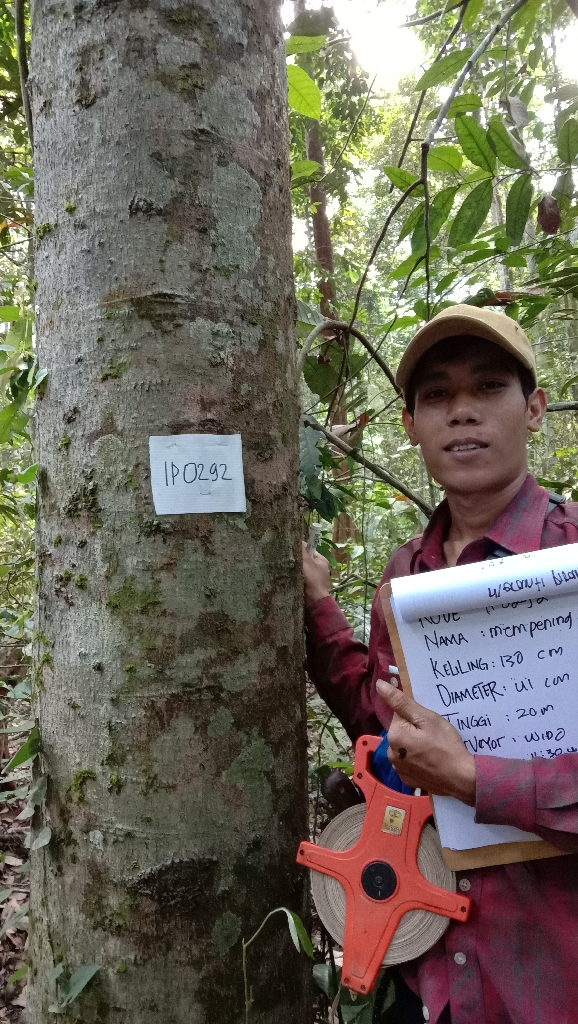 IP0292
KODE
NAMA : mempening
KELILING : 130 cm
DIAMETER : 41 cm
TINGGI : 20 m
: WIDO